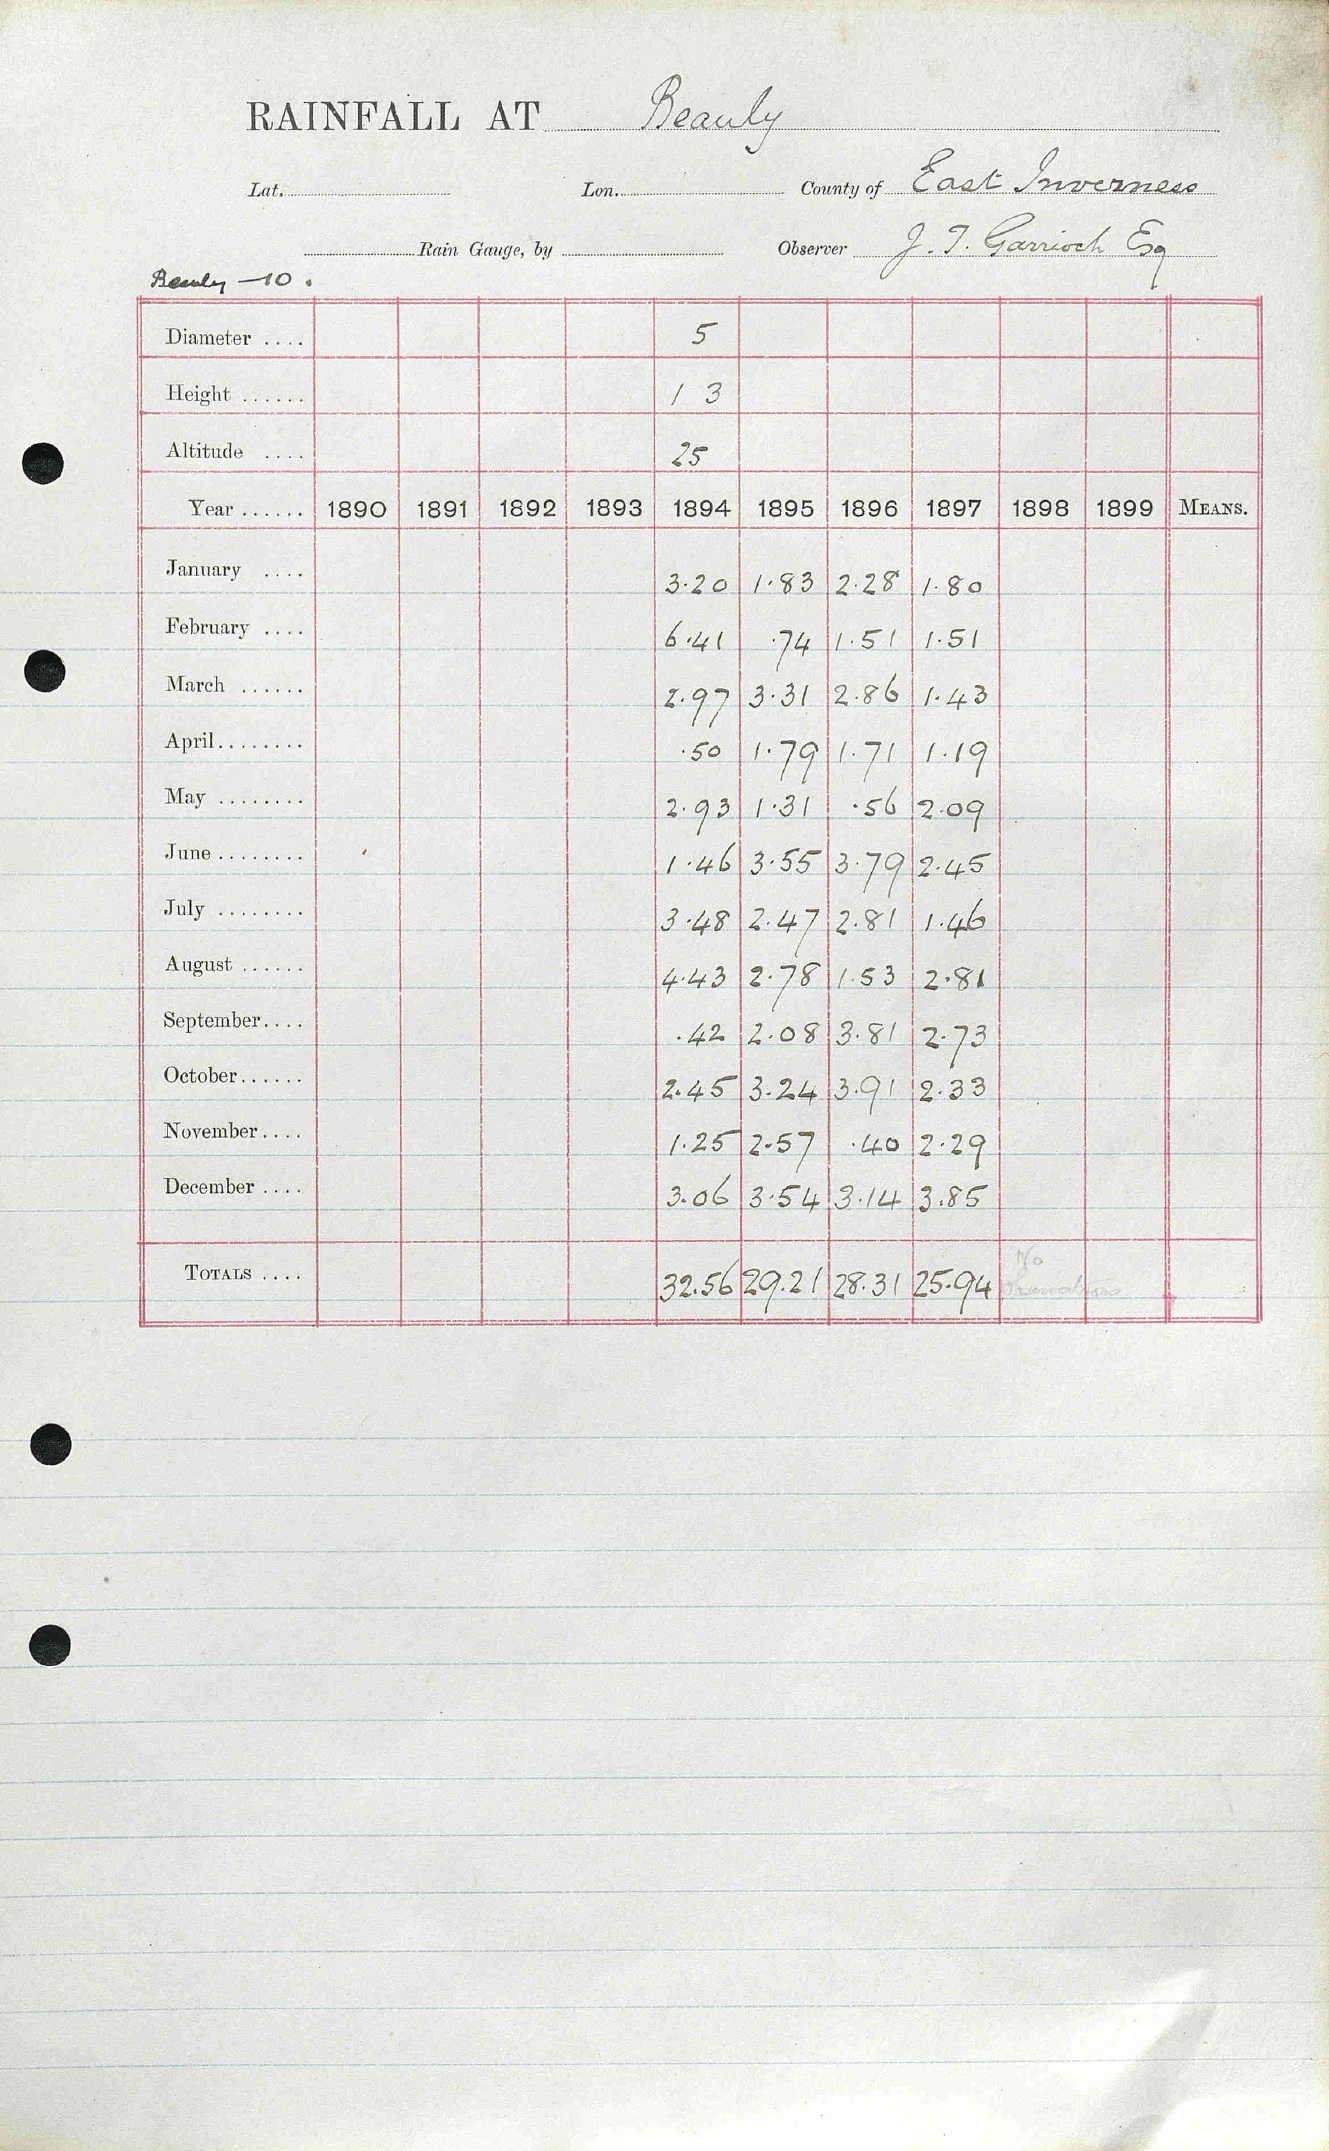 RAINFALL AT Beauly
Lat. Lon. County of East Inverness
Rain Gauge, by Observer J. T. Garrioch Esq
Beauly —10.
Diameter .... 5
Height ...... 1 3
Altitude .... 25
Year ...... 1890 1891 1892 1893 1894 1895 1896 1897 1898 1899 MEANS.
January .... 3.20 1.83 2.28 1.80
February .... 6.41 .74 1.51 1.51
March ...... 2.97 3.31 2.86 1.43
April........ .50 1.79 1.71 1.19
May ........ 2.93 1.31 .56 2.09
June ........ 1.46 3.55 3.79 2.45
July ........ 3.48 2.47 2.81 1.46
August ...... 4.43 2.78 1.53 2.81
September.... .42 2.08 3.81 2.73
October...... 2.45 3.24 3.91 2.33
November.... 1.25 2.57 .40 2.29
December .... 3.06 3.54 3.14 3.85
No
TOTALS .... 32.56 29.21 28.31 25.94